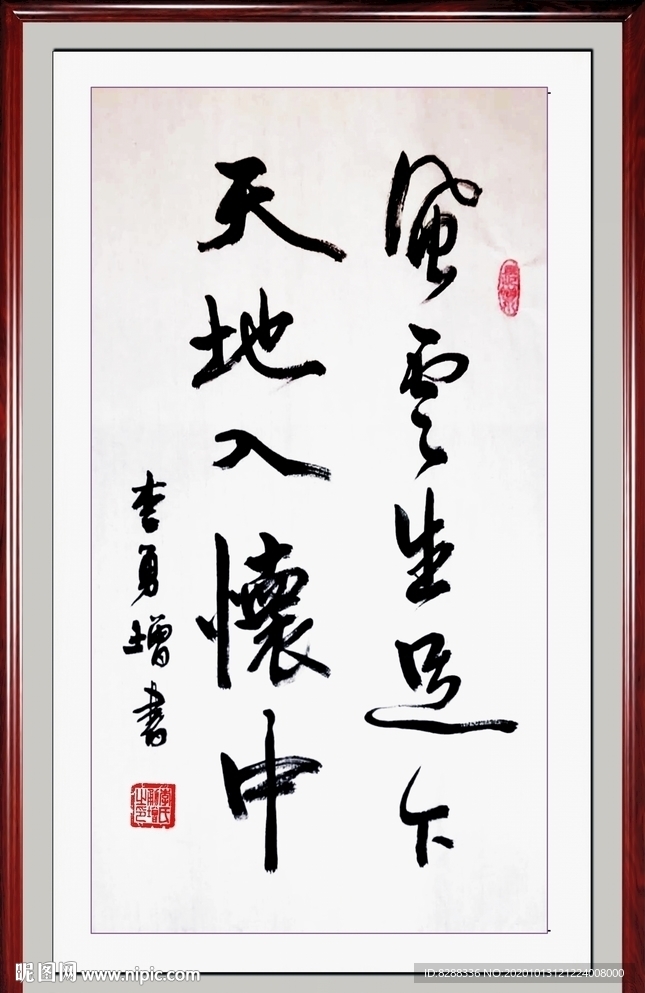 風雲生足下
天地入懷中
李勇增書
昵图网 www.nipic.com
ID:8288336 NO:20201013121224008000